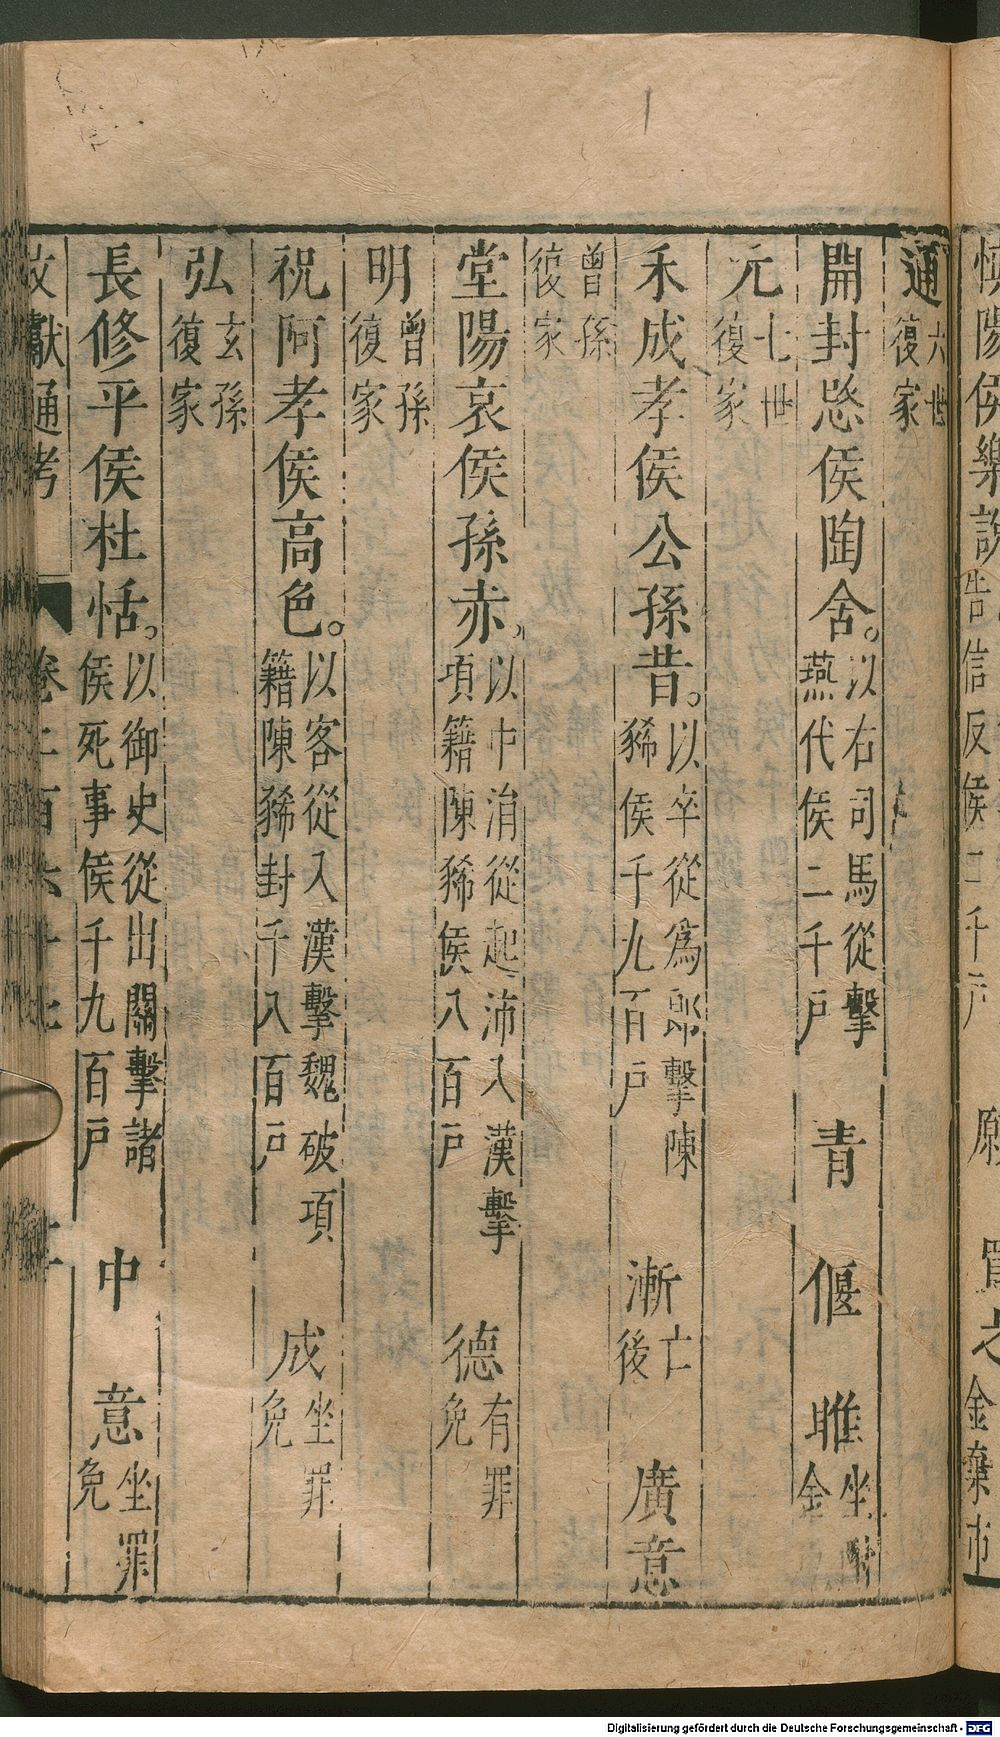 慎陽侯樂說告信反侯二千戶 願 買之金棄市
通六世復家
開封愍侯陶舍。以右司馬從擊燕代侯二千戶 青 偃 睢坐酎金
元七世復家
禾成孝侯公孫昔。以卒從為郎擊陳豨侯千九百戶 漸亡後 廣意
曾孫復家
堂陽哀侯孫赤。以中涓從起沛入漢擊項籍陳豨侯八百戶 德有罪免
明曾孫復家
祝阿孝侯高色。以客從入漢擊魏破項籍陳豨封千八百戶 成坐罪免
弘玄孫復家
長修平侯杜恬。以御史從出關擊諸侯死事侯千九百戶 中 意坐罪免
文獻通考 卷二百六十七
Digitalisierung gefördert durch die Deutsche Forschungsgemeinschaft - DFG